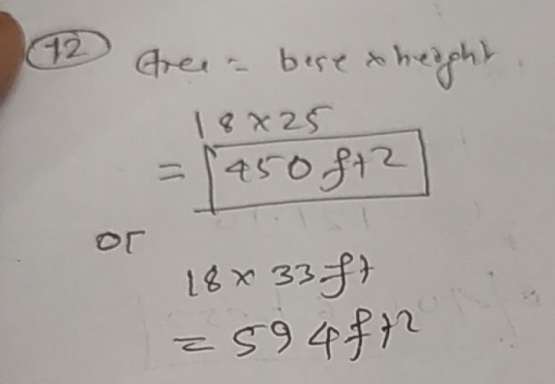 12 Area = base x height
18 x 25
= 450 ft2
or
18 x 33 ft
= 594 ft2